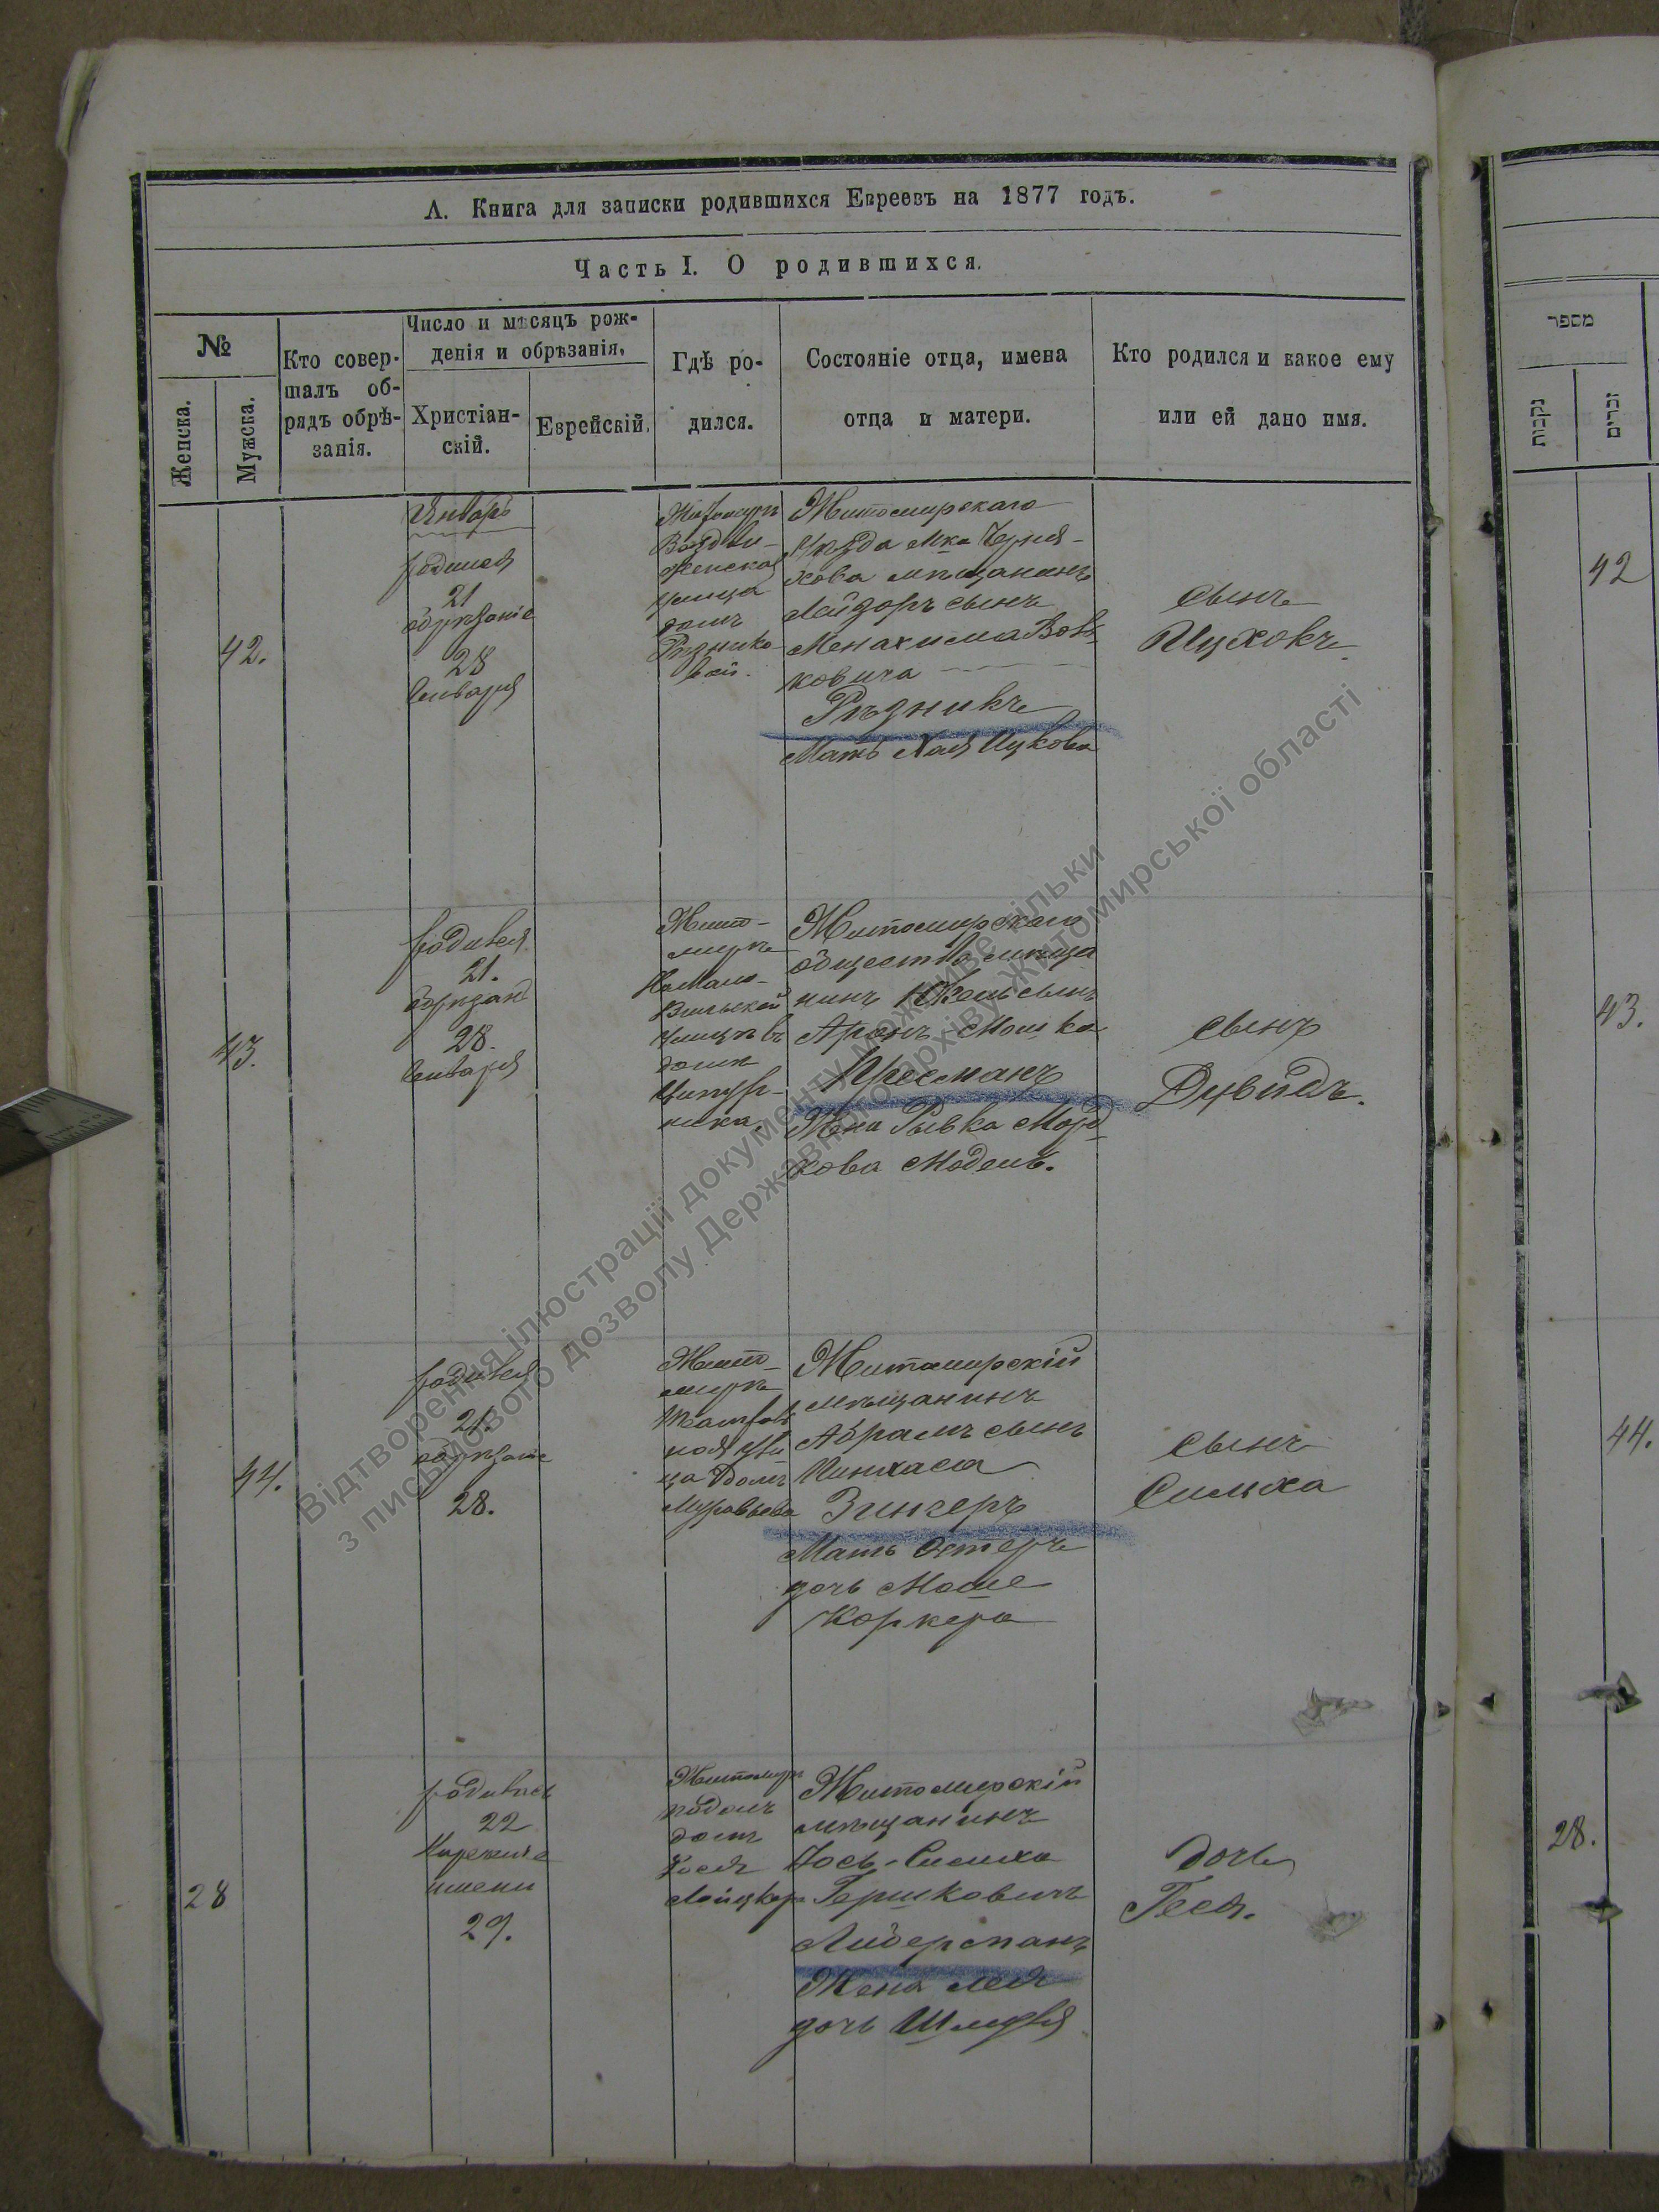 А. Книга для записки родившихся Евреевъ на 1877 годъ.
Часть I. О родившихся.
№
Женска.
Мужска.
Кто совер-
шалъ об-
рядъ обрѣ-
занія.
Число и мѣсяцъ рож-
денія и обрѣзанія.
Христіан-
скій.
Еврейскій.
Гдѣ ро-
дился.
Состояніе отца, имена
отца и матери.
Кто родился и какое ему
или ей дано имя.
42.
Январь
родился
21
обрезаніе
28
Января
Житомиръ
Воздви-
женская
улица
домъ
Резнико-
вой.
Житомирскаго
Уѣзда Мка Черня-
хова мѣщанинъ
Лейзоръ сынъ
Менахима Вов-
ковича
Рѣзникъ
Мать Хая Ицкова
сынъ
Ицхокъ
43.
родился
21.
обрезан
28.
Января
Жито-
миръ
На Мало-
Вильской
улицѣ въ
доме
Житомирскаго
общества мѣща
нинъ сынъ
Аронъ Мошка
Пресманъ
Жена РывкаМорд-
хова
сынъ
Дувидъ.
44.
родился
21.
обрезание
28.
Жито-
миръ
Театраль
ная ули
ца домъ
Муравьева
Житомирскій
мѣщанинъ
Абрамъ сынъ
Пинхаса
Зингеръ
Мать Эстеръ
дочь Моше
Коркера
сынъ
Симха
28
родилась
22
Наречение
имени
29.
Житомиръ
подолъ
домъ
Житомирскій
мѣщанинъ
Іось-Симха
Гершковичъ
Лидерманъ
Жена Лея
дочь
дочь
Геся.
מספר
נקבות
זכרים
42
43.
44.
28.
Відтворення ілюстрації документу можливе тільки
з письмового дозволу Державного архіву Житомирської області